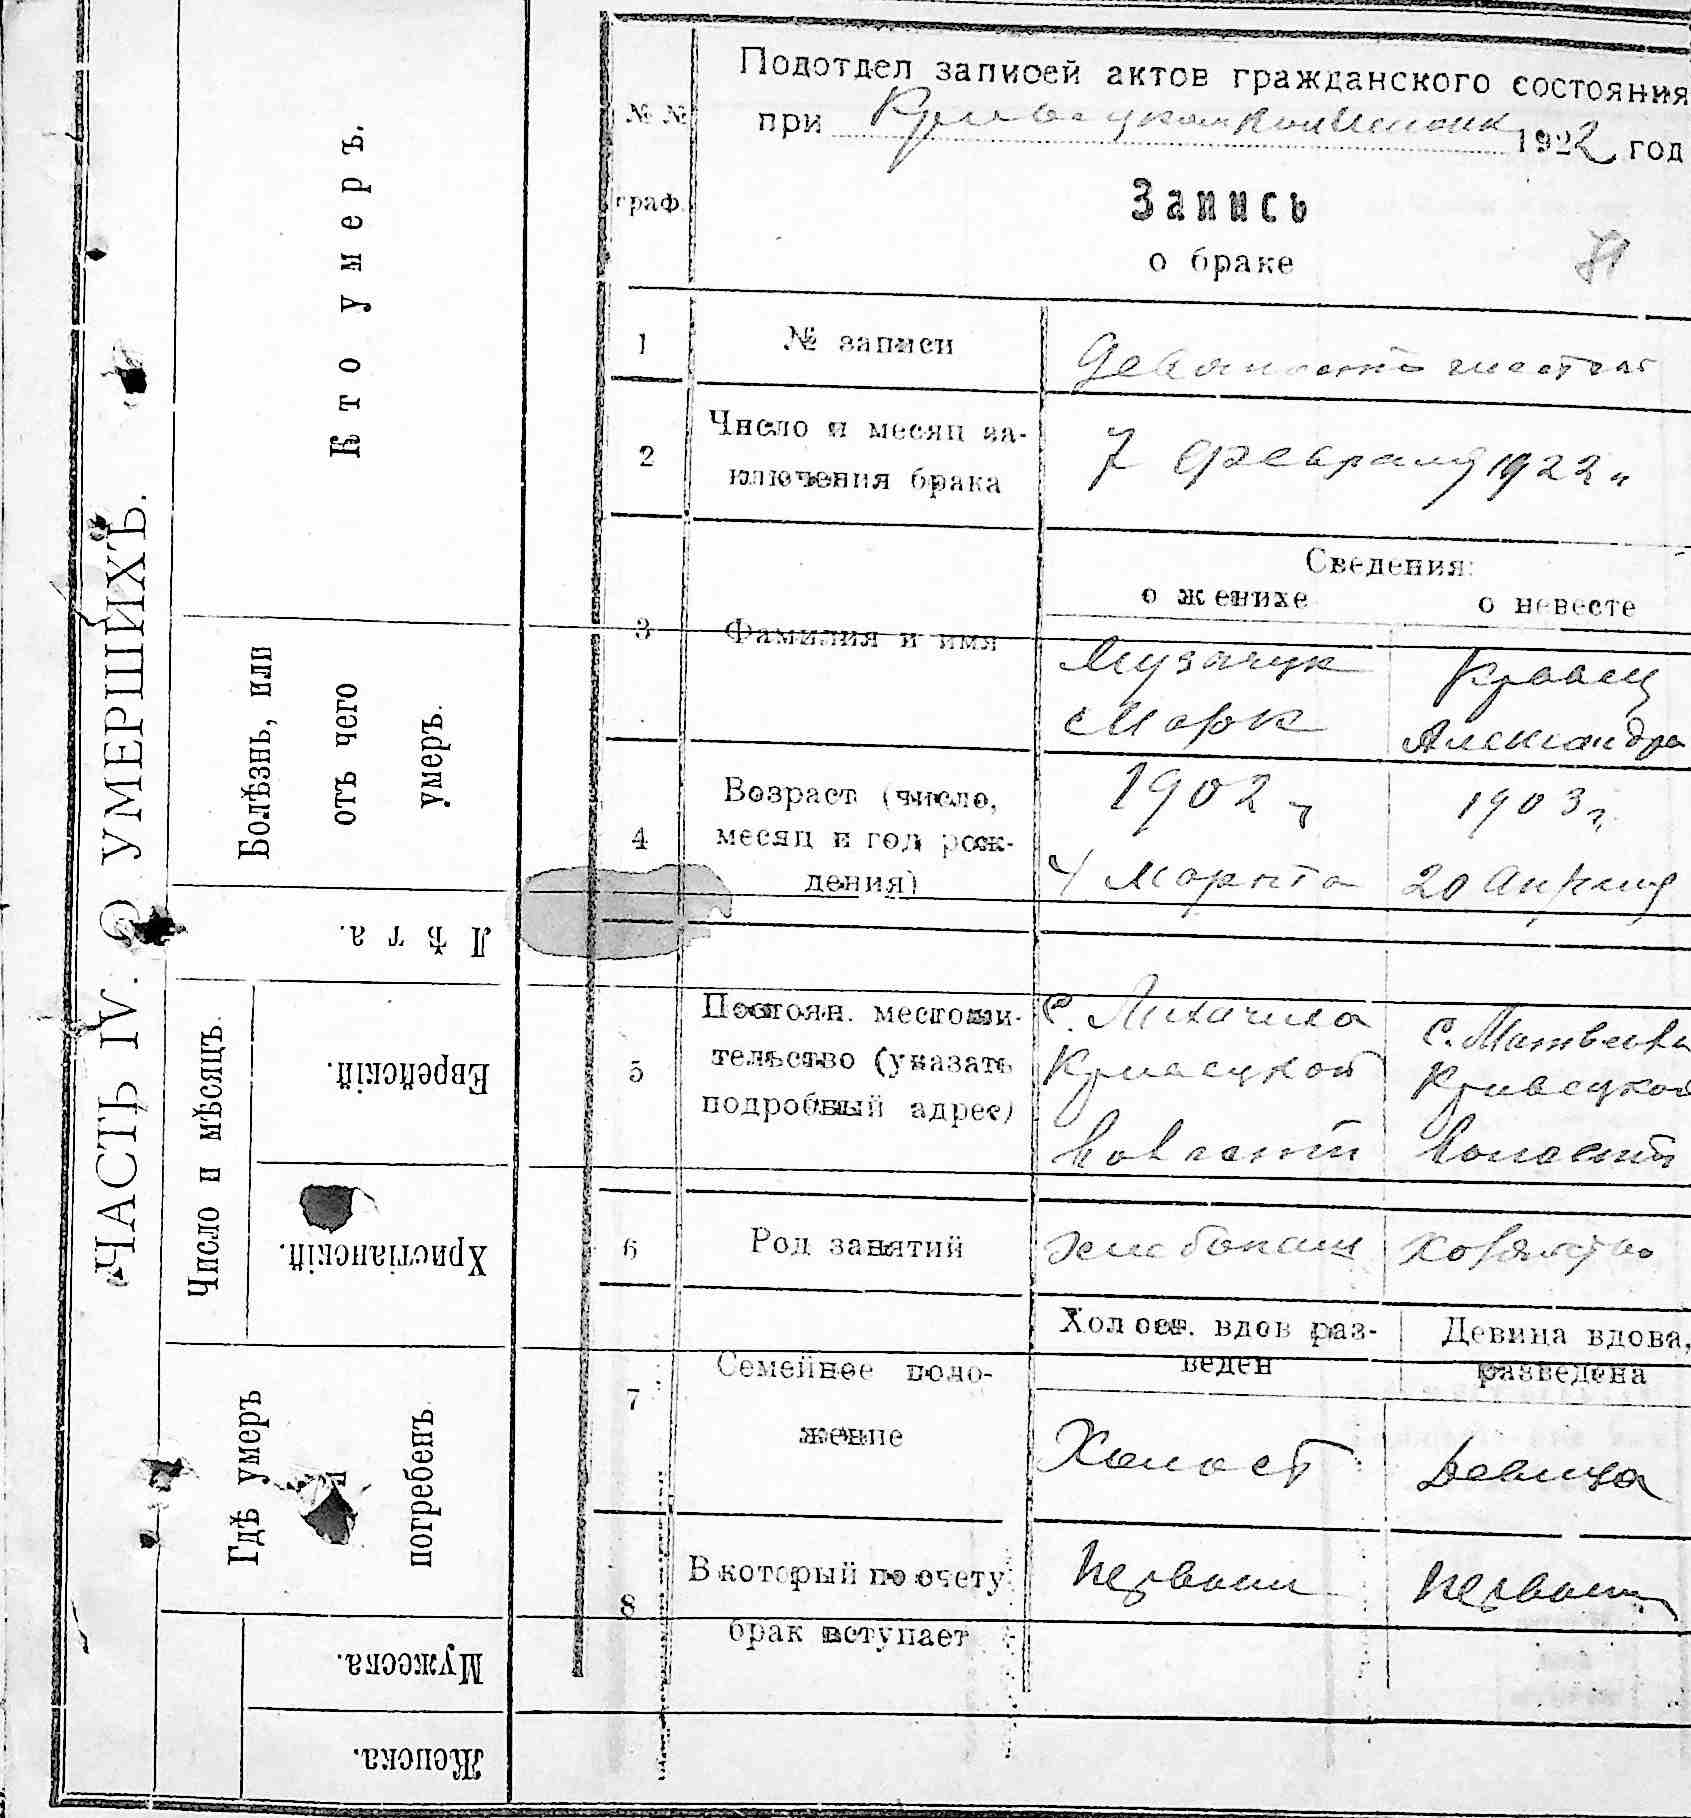 ЧАСТЬ IV. О УМЕРШИХЪ.
Кто умеръ.
Болѣзнь, или
отъ чего
умеръ.
Лѣта.
Число и мѣсяцъ.
Еврейскій.
Христіанскій.
Гдѣ умеръ
и
погребенъ.
Мужеска.
Женска.
№№
граф.
Подотдел записей актов гражданского состояния
при 1922 год
Запись
о браке
1 № записи Девяносто шестая
2 Число и месяц за-
ключения брака
7 февраля 1922 г
Сведения:
о женихе о невесте
3 Фамилия и имя
Музычук Кравец
Марк Александра
4 Возраст (число,
месяц и год рож-
дения)
1902 г 1903 г.
4 Марта 20 Апреля
5 Постоян. местожи-
тельство (указать
подробный адрес)
С. Лихачиха С.
Кривецкой Кривецкой
волости волости
6 Род занятий хлебопаш хозяйство
7 Семейное поло-
жение
Холост. вдов раз-
веден
Девица вдова,
разведена
Холост Девица
8 В который по счету
брак вступает
Первый Первый